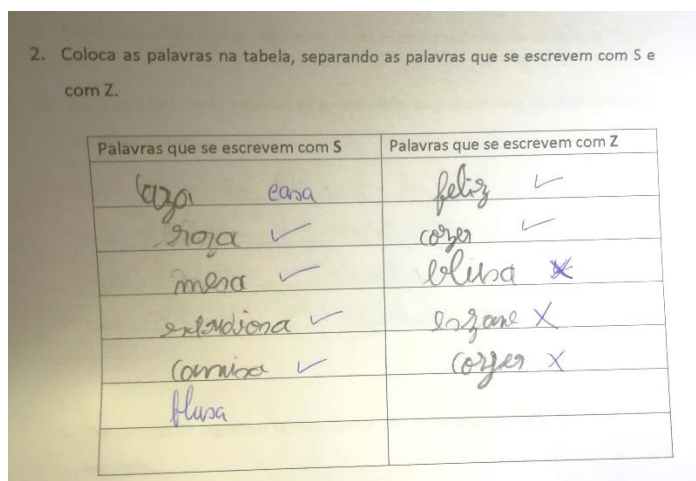 2. Coloca as palavras na tabela, separando as palavras que se escrevem com S e
com Z.
Palavras que se escrevem com S Palavras que se escrevem com Z
caza casa feliz ✓
roza ✓ cozer ✓
mesa ✓ blusa ✗
estudiosa ✓ ✗
camisa ✓ ✗
blusa